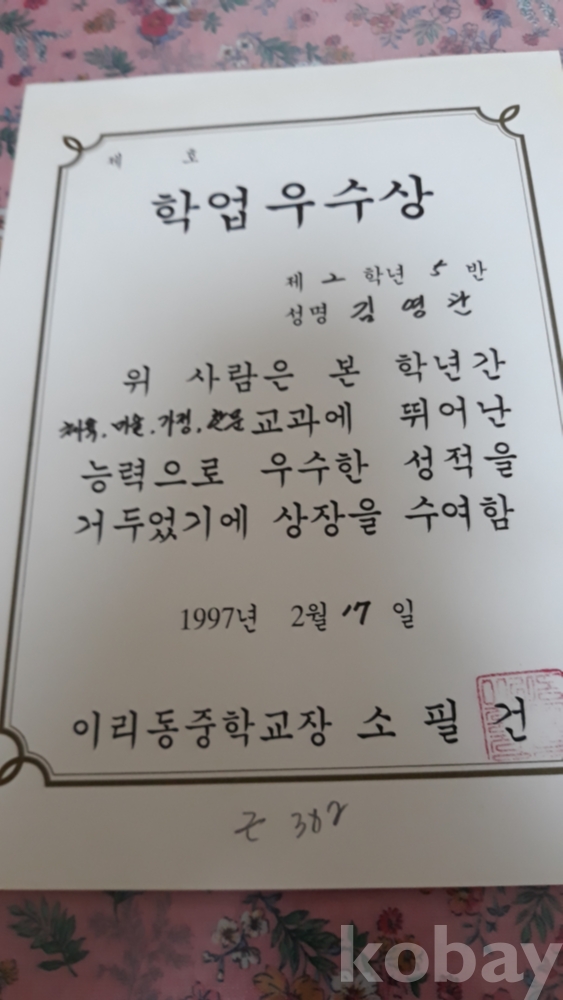 제 호
학업우수상
제 2 학년 5 반
성명 김 영 관
위 사람은 본 학년간
체육. 미술. 가정. 교과에 뛰어난
능력으로 우수한 성적을
거두었기에 상장을 수여함
1997년 2월 17일
이리동중학교장 소 필 건
382
kobay